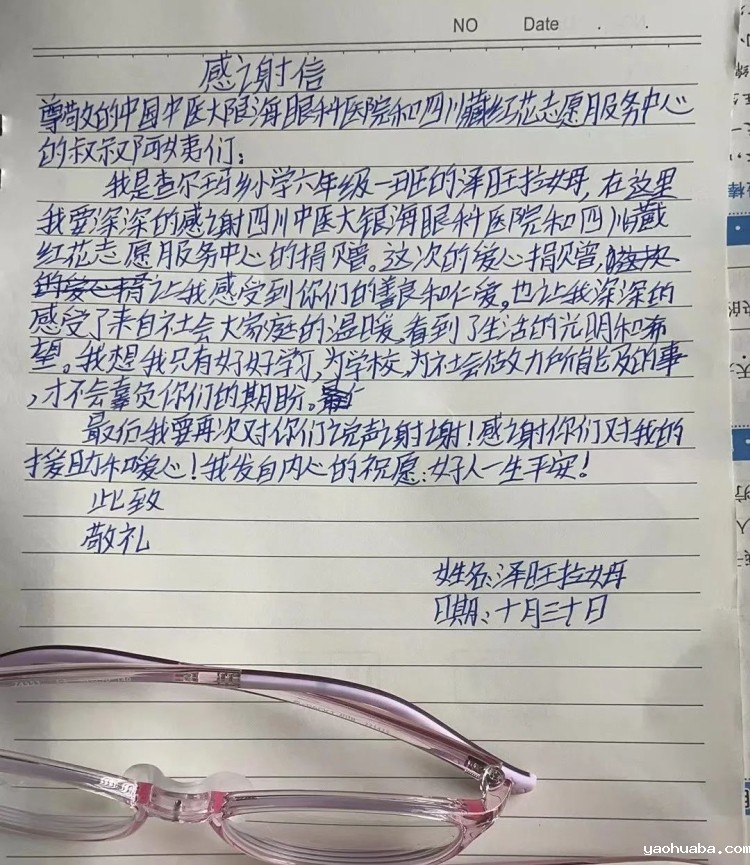 NO Date . .
感谢信
尊敬的中国中医大限海眼科医院和四川藏红花志愿服务中心
的叔叔阿姨们:
我是查尔玛乡小学六年级一班的泽旺拉姆,在这里
我要深深的感谢四川中医大银海眼科医院和四川藏
红花志愿服务中心的捐赠。这次的爱心捐赠,
的爱心捐让我感受到你们的善良和仁爱。也让我深深的
感受了来自社会大家庭的温暖,看到了生活的光明和希
望。我想我只有好好学习,为学校,为社会做力所能及的事
,才不会辜负你们的期盼。
最后我要再次对你们说声谢谢!感谢你们对我的
援助和暖心!我发自内心的祝愿:好人一生平安!
此致
敬礼
姓名:泽旺拉姆
日期:十月三十日
yaohuaba.com